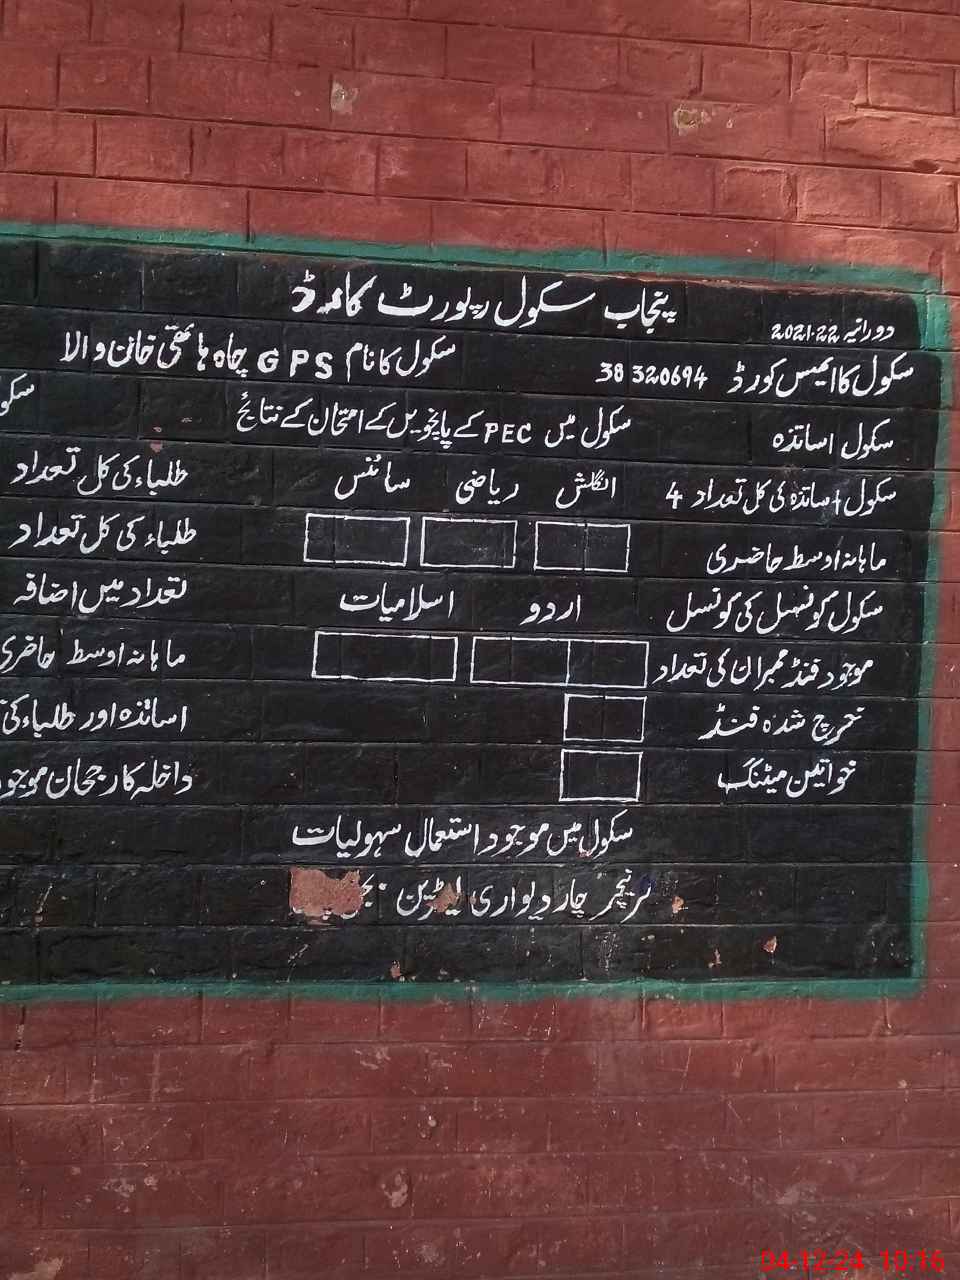 پنجاب سکول رپورٹ کارڈ
دورانیہ 2021-22
سکول کا ایمیس کورڈ 38320694 سکول کا نام GPS چاہ ہاتھی خان والا
سکول اساتذہ سکول میں PEC کے پانچویں کے امتحان کے نتائج
سکول اساتذہ کی کل تعداد 4 انگلش ریاضی سائنس طلباء کی کل تعداد
ماہانہ اوسط حاضری طلباء کی کل تعداد
سکول کونسل کی کونسل اردو اسلامیات تعداد میں اضافہ
موجود فنڈ ممبران کی تعداد ماہانہ اوسط حاضری
خرچ شدہ فنڈ اساتذہ اور طلباء کی
خواتین میٹنگ داخلہ کا رجحان
سکول میں موجود استعمال سہولیات
فرنیچر چار دیواری لیٹرین
04-12-24 10:16